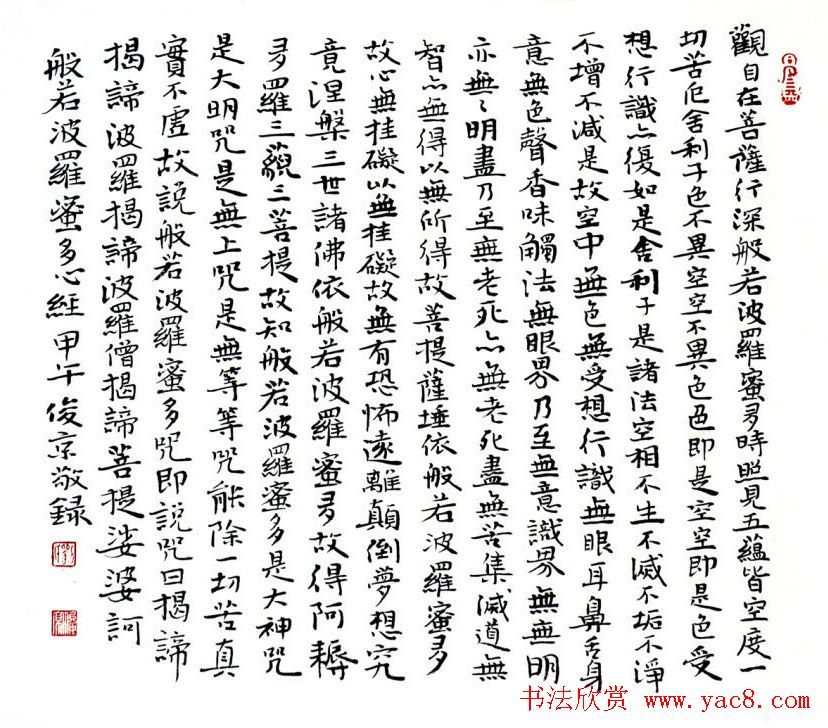 觀自在菩薩行深般若波羅蜜多時照見五蘊皆空度一
切苦厄舍利子色不異空空不異色色即是空空即是色受
想行識亦復如是舍利子是諸法空相不生不滅不垢不淨
不增不減是故空中無色無受想行識無眼耳鼻舌身
意無色聲香味觸法無眼界乃至無意識界無無明
亦無無明盡乃至無老死亦無老死盡無苦集滅道無
智亦無得以無所得故菩提薩埵依般若波羅蜜多
故心無挂礙以無挂礙故無有恐怖遠離顛倒夢想究
竟涅槃三世諸佛依般若波羅蜜多故得阿耨
多羅三藐三菩提故知般若波羅蜜多是大神咒
是大明咒是無上咒是無等等咒能除一切苦真
實不虛故說般若波羅蜜多咒即說咒曰揭諦
揭諦波羅揭諦波羅僧揭諦菩提娑婆訶
般若波羅蜜多心經甲午俊京敬錄
书法欣赏 www.yac8.com